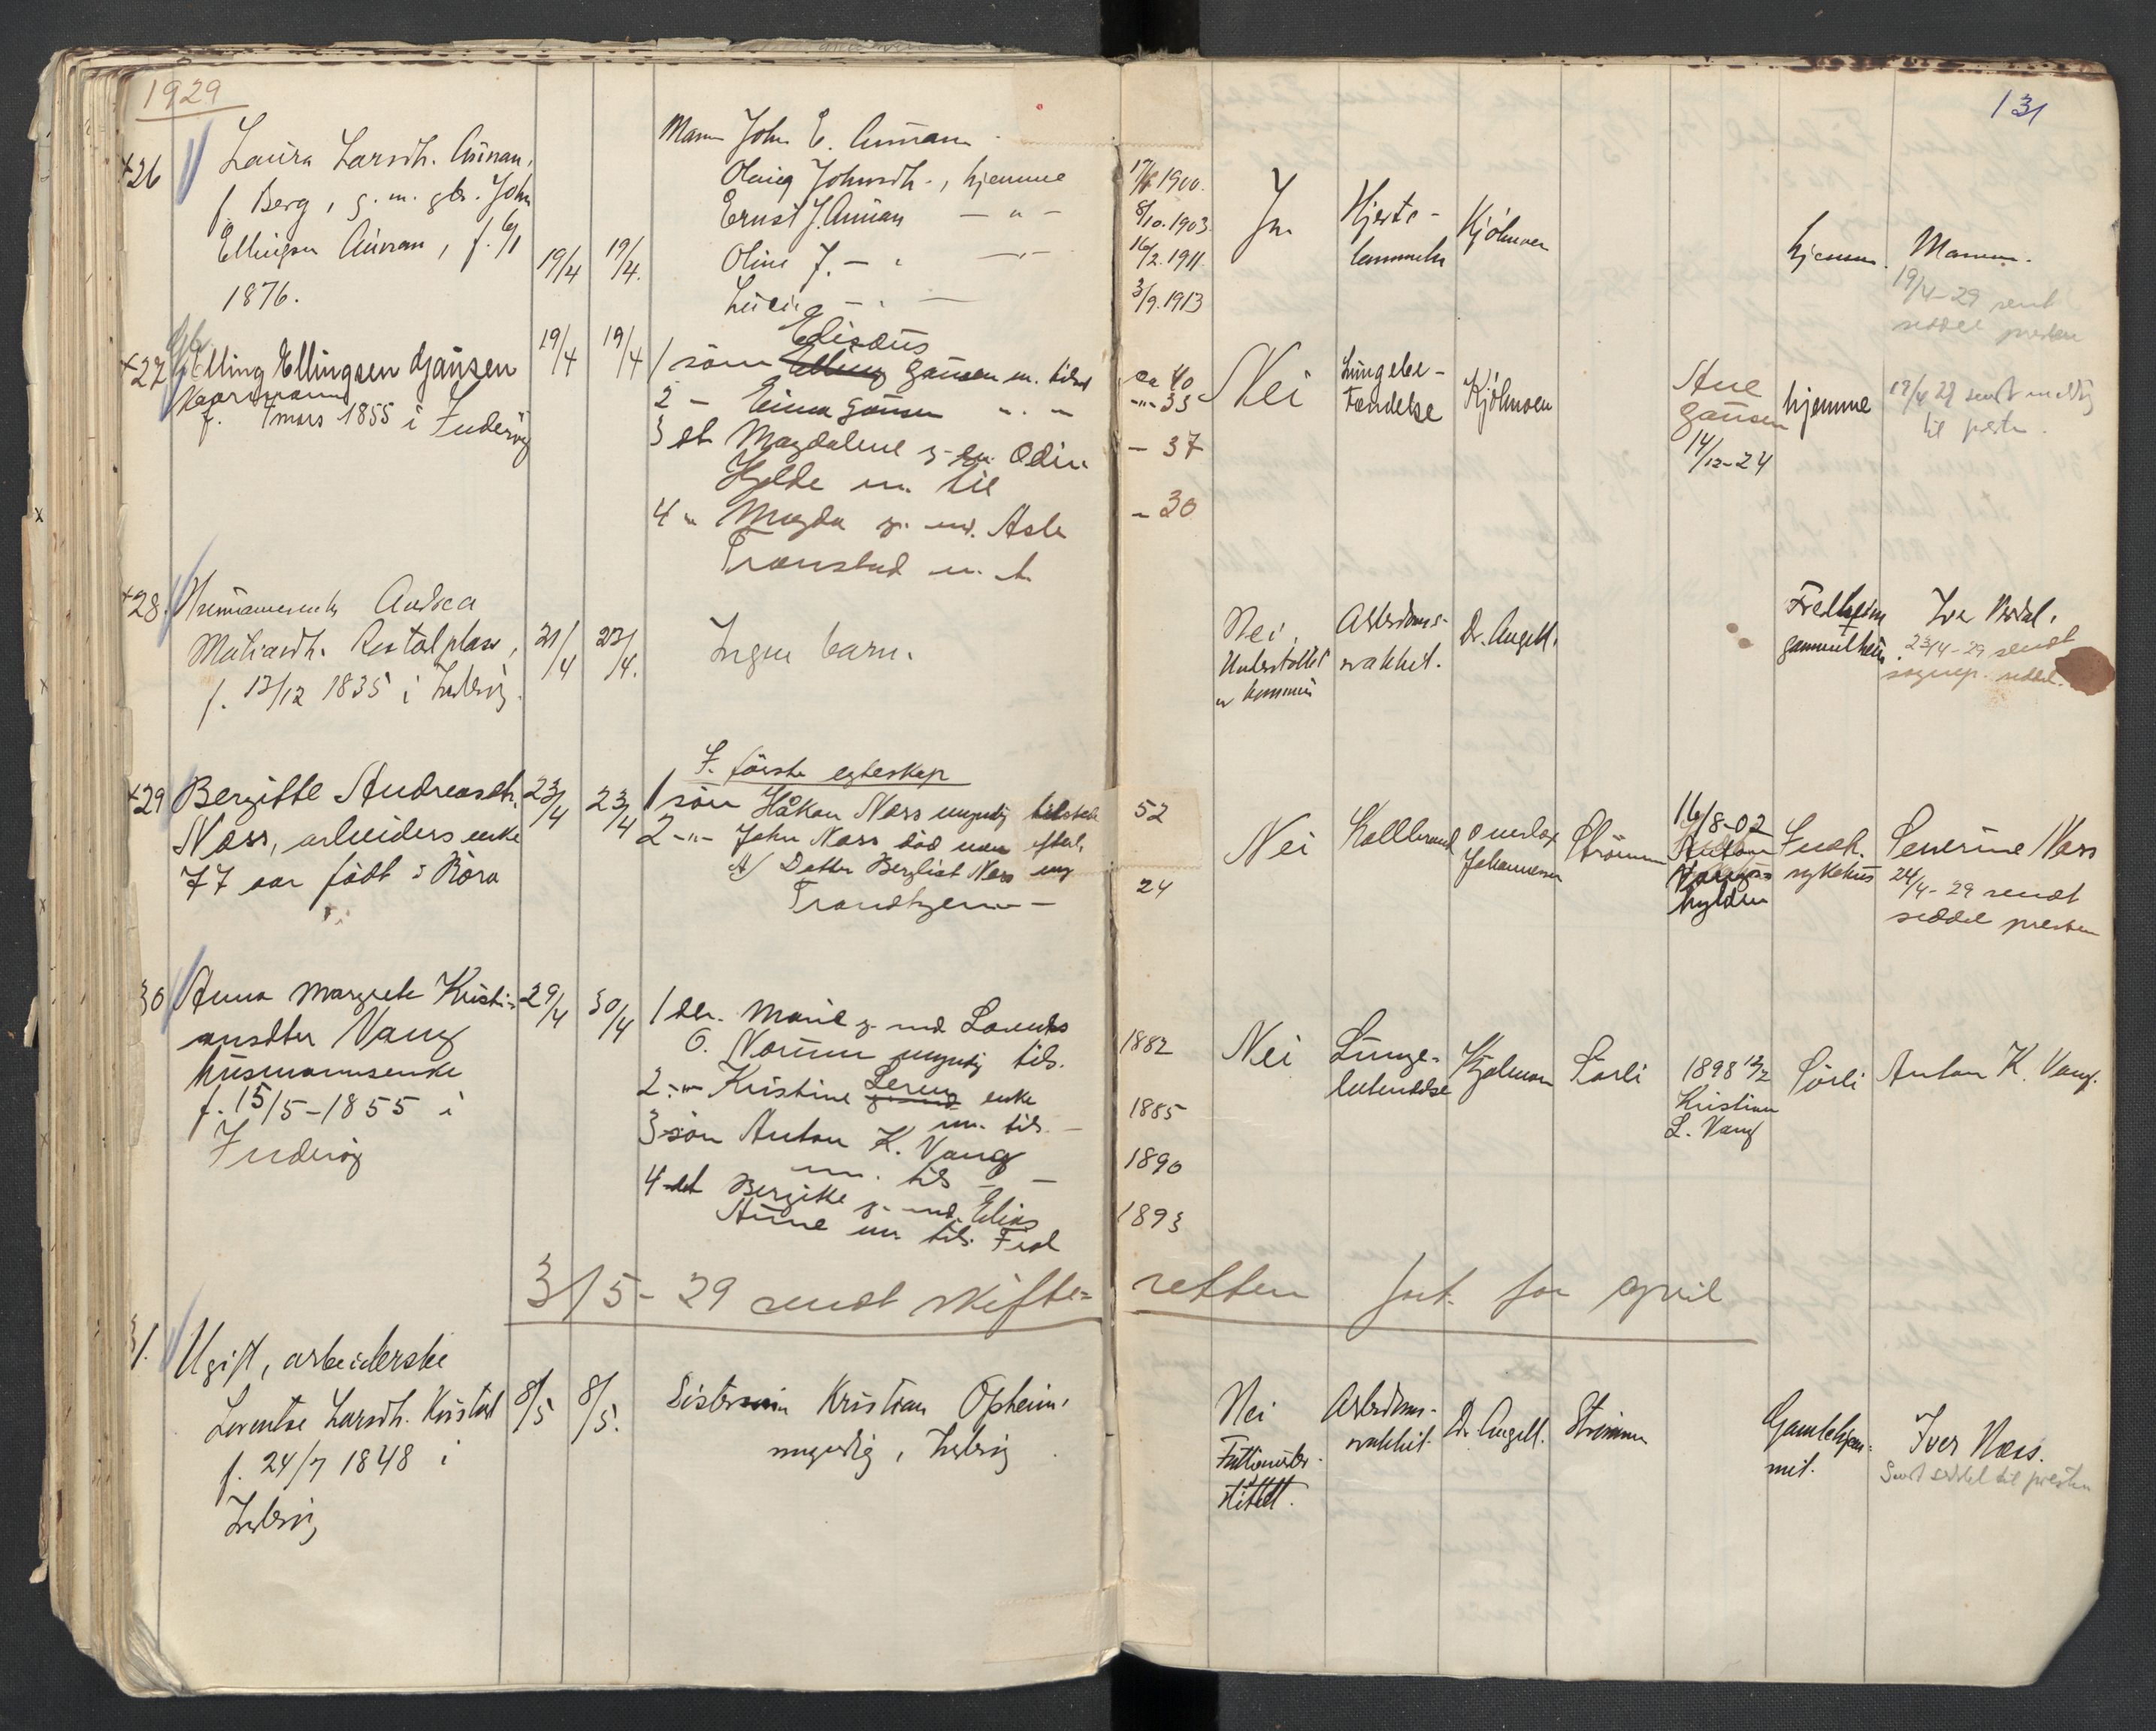 1929
131
+26 Laura Larsdh. Aünan,
f. Berg, g. m. gbr. John
Ellingsen Aünan, f. 6/1
1876.
19/4 19/4.
Mann John E. Aünan
Olaug Johnsdh., hjemme 17/4 1900.
Ernst J. Aünan — " — 8/10. 1903.
Oline J. — " — 16/2. 1911
— " — 3/9. 1913
Ja
Hjerte-
lammelse
Kjölmoen
hjemme.
Mannen.
19/4-29 sendt
seddel presten
+27 Elling Ellingsen Gjaüsen
Kaarmann
f. 7 mars 1855 i Inderöy
19/4 19/4
Edisæus
1 sönn Elling Gaüsen m. tilst ca 40
2 — Einar Gaüsen " — " — 35
3 dt Magdalene g. m. Odin — 37
Hylde m. til
4 " Magda g. m. Asle — 30
Tronstad m. t.
Nei
Lüngebe-
tendelse
Kjölmoen
Ane
Gaüsen
14/12-24
hjemme
19/4 29 sendt melding
til presten.
+28. Andrea
Matiasdh. Røstadplass,
f. 13/12 1835 i Inderöy.
21/4 23/4.
Ingen barn.
Nei.
Understöttet
av kommün
Alderdoms-
svakhet.
Dr. Angell.
Fredheim
gammelheim.
Iver
23/4-29 sendt
sognep. seddel.
+29 Bergitte Andreasdt.
Næss, arbeiders enke
77 aar födt i Röra
23/4 23/4
I. første egteskap
1 sön Håkon Næss myndig tilstede 52
2 -"- John Næss död uten efterl.
A/ Datter Bergliot Næss myg 24
Trondhjem —
Nei
Koldbrand
overlæge
Johannesen
Strömmen
16/8-02
Anton
hylden
Innh.
sykehus
Severine Næss
24/4-29 sendt
seddel presten
30 Anna Margrete Kristi-
ansdtter Vang
hüsmannsenke
f. 15/5-1855 i
Inderöy
29/4 30/4
1 dtr. Marie g. m. Lorents
O. Norüm myndig tils. 1882
2 -"- Kristine Lereng enke
m. tils. — 1885
3 sön Anton K. Vang
m. tils — — 1890
4 dt Bergitte g. m. Elias
Aüne m. tils. Fiol 1893
Nei
Lünge-
betendelse
Kjølmoen
Sørli
1898 12/2
Kristian
L. Vang
Sörli
Anton K. Vang.
3/5-29 sendt skifte-retten fort. for april
31. Ugift, arbeiderske
Lorentse Larsdh. Røstad
f. 24/7 1848 i
Inderöy
8/5 8/5.
Søstersönn Kristian Opheim,
myndig, Inderöy.
Nei
Fattigunder-
stöttet.
Alderdoms-
svakhet.
Dr. Angell.
Strømmen
Gamlehjem-
met.
Iver Næss.
Sendt seddel til presten